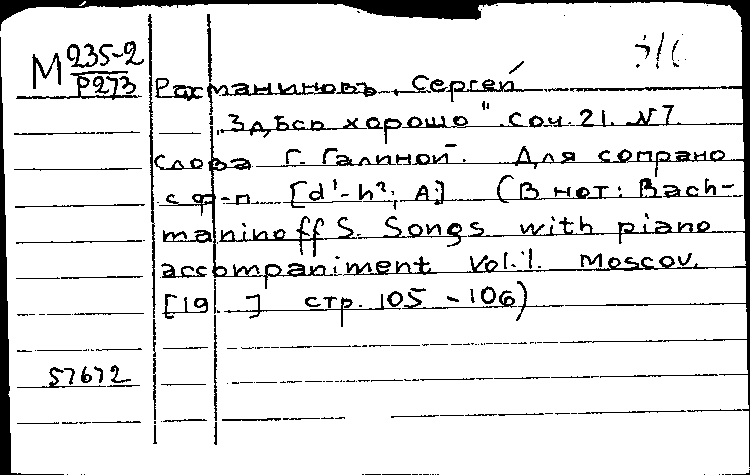 М 235-2
Р273
Рахманиновъ, Сергей
„Здѣсь хорошо“. Соч. 21. №7.
Слова Г. Галиной. Для сопрано
с ф-п [d¹-h²; A.] (В нот: Bach-
maninoff S. Songs with piano
accompaniment Vol. 1. Moscov.
[19..] стр. 105 - 106)
57672